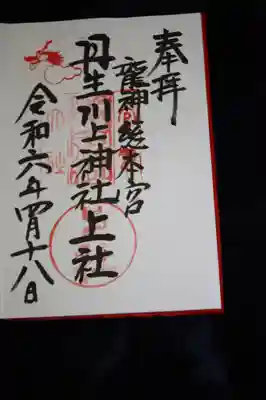 奉拝
龍神総本宮
丹生川上神社上社
令和六年四月十八日